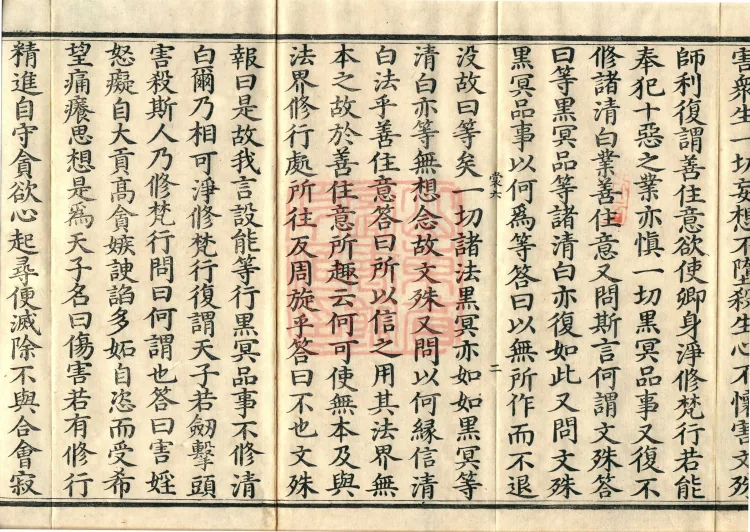 害衆生一切妄想不墮殺生心不懷害文殊
師利復謂善住意欲使卿身淨修梵行若能
奉犯十惡之業亦慎一切黑冥品事又復不
修諸清白業善住意又問斯言何謂文殊答
曰等黑冥品等諸清白亦復如此又問文殊
黑冥品事以何爲等答曰以無所作而不退
没故曰等矣一切諸法黑冥亦如如黑冥等
棠六
二
清白亦等無想念故文殊又問以何緣信清
白法乎善住意答曰所以信之用其法界無
本之故於善住意所趣云何可使無本及與
法界修行處所往反周旋乎答曰不也文殊
報曰是故我言設能等行黑冥品事不修清
白爾乃相可淨修梵行復謂天子若劒擊頭
害殺斯人乃修梵行問曰何謂也答曰害婬
怒癡自大貢高貪嫉諛諂多妬自恣而受希
望痛癢思想是爲天子名曰傷害若有修行
精進自守貪欲心起尋便滅除不與合會寂